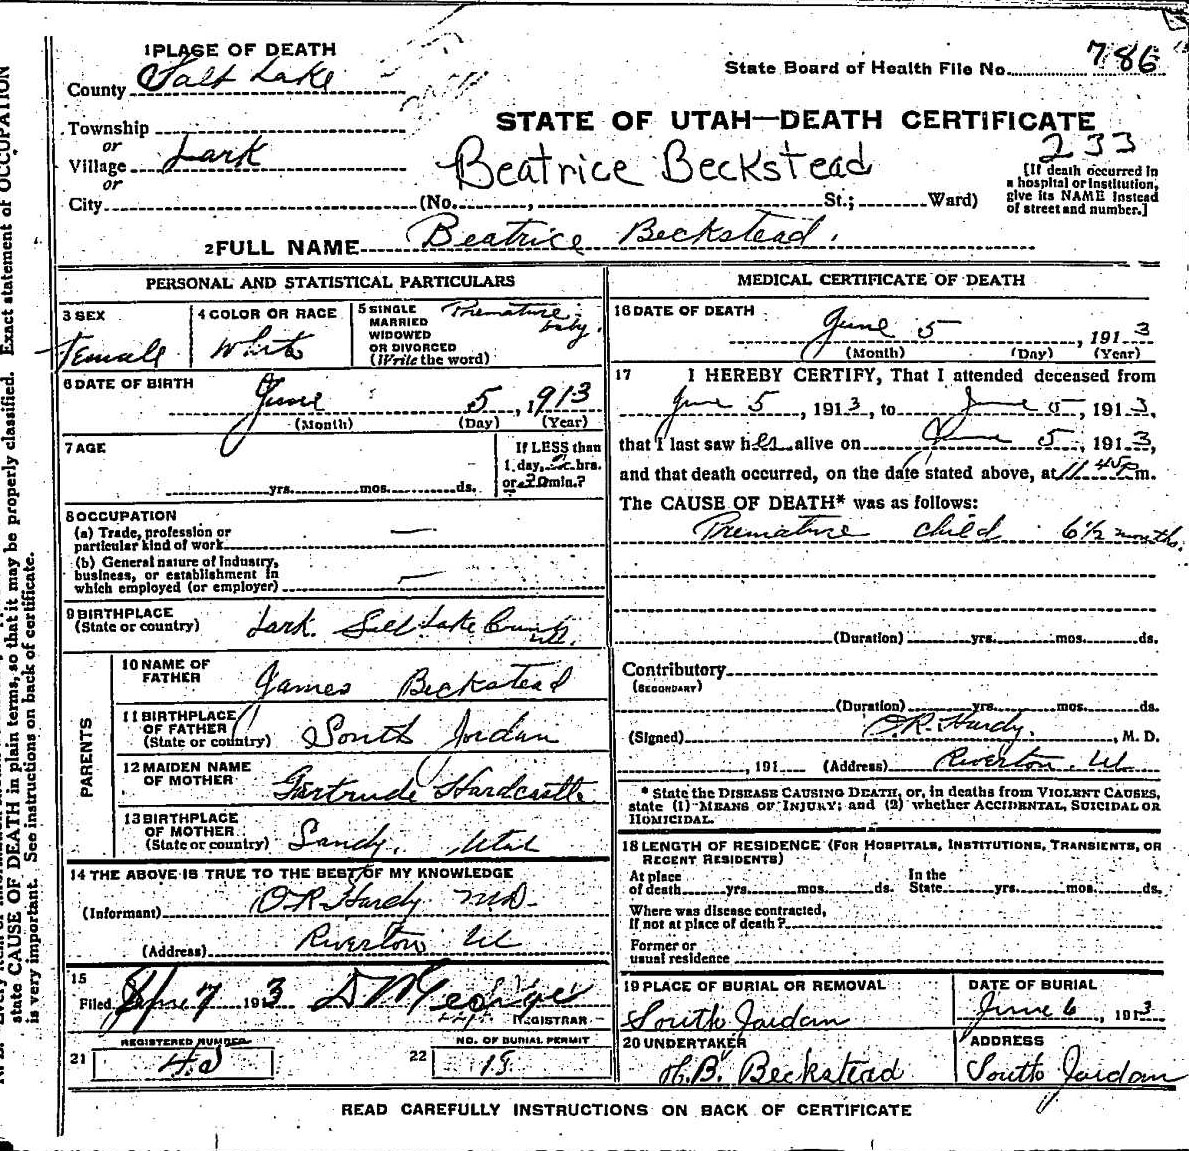 1 PLACE OF DEATH
County Salt Lake
State Board of Health File No. 786
Township
or
Village Lark
or
City (No. , St.; Ward)
STATE OF UTAH—DEATH CERTIFICATE
233
Beatrice Beckstead
[If death occurred in
a hospital or institution,
give its NAME instead
of street and number.]
2 FULL NAME Beatrice Beckstead.
PERSONAL AND STATISTICAL PARTICULARS
3 SEX
Female
4 COLOR OR RACE
White
5 SINGLE
MARRIED
WIDOWED
OR DIVORCED
(Write the word)
Premature baby.
6 DATE OF BIRTH
June 5, 1913
(Month) (Day) (Year)
7 AGE
yrs. mos. ds.
If LESS than
1 day, hrs.
or 20 min.?
8 OCCUPATION
(a) Trade, profession or
particular kind of work —
(b) General nature of Industry,
business, or establishment in
which employed (or employer) —
9 BIRTHPLACE
(State or country) Lark. Salt Lake County Ut.
PARENTS
10 NAME OF
FATHER James Beckstead
11 BIRTHPLACE
OF FATHER
(State or country) South Jordan
12 MAIDEN NAME
OF MOTHER Gertrude Hardcastle
13 BIRTHPLACE
OF MOTHER
(State or country) Sandy, Utah
14 THE ABOVE IS TRUE TO THE BEST OF MY KNOWLEDGE
(Informant) O.R. Hardy M.D.
(Address) Riverton Ut
15
Filed June 7 1913
REGISTRAR
REGISTERED NUMBER
21
NO. OF BURIAL PERMIT
22
MEDICAL CERTIFICATE OF DEATH
16 DATE OF DEATH
June 5, 1913
(Month) (Day) (Year)
17 I HEREBY CERTIFY, That I attended deceased from
June 5, 1913, to June 5, 1913,
that I last saw her alive on June 5, 1913,
and that death occurred, on the date stated above, at 11 45 P m.
The CAUSE OF DEATH* was as follows:
Premature child 6½ months.
(Duration) yrs. mos. ds.
Contributory
(SECONDARY)
(Duration) yrs. mos. ds.
(Signed) O.R. Hardy, M. D.
, 191 (Address) Riverton. Ut
* State the DISEASE CAUSING DEATH, or, in deaths from VIOLENT CAUSES,
state (1) MEANS OF INJURY; and (2) whether ACCIDENTAL, SUICIDAL OR
HOMICIDAL.
18 LENGTH OF RESIDENCE (FOR HOSPITALS, INSTITUTIONS, TRANSIENTS, OR
RECENT RESIDENTS)
At place
of death yrs. mos. ds.
In the
State yrs. mos. ds.
Where was disease contracted,
If not at place of death?
Former or
usual residence
19 PLACE OF BURIAL OR REMOVAL
South Jordan
DATE OF BURIAL
June 6, 1913
20 UNDERTAKER
H.B. Beckstead
ADDRESS
South Jordan
READ CAREFULLY INSTRUCTIONS ON BACK OF CERTIFICATE
state CAUSE OF DEATH in plain terms, so that it may be properly classified. Exact statement of OCCUPATION
is very important. See instructions on back of certificate.